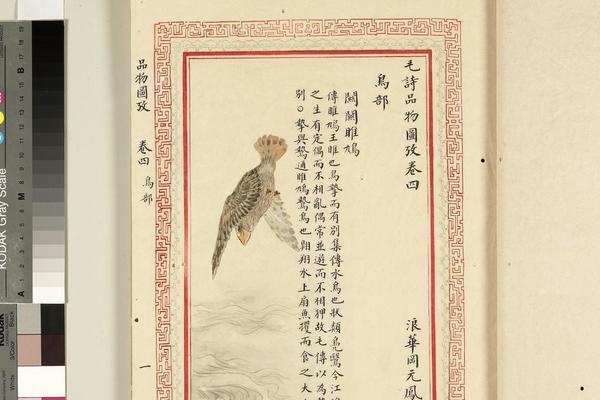 毛詩品物圖攷卷四
浪華岡元鳳
鳥部
關關雎鳩
傳雎鳩王雎也鳥摯而有別集傳水鳥也狀類鳧鷖今江
之生有定偶而不相亂偶常並遊而不相狎故毛傳以為摯
別○摯與鷙通雎鳩鷙鳥也翱翔水上扇魚攫而食之大
品物圖攷 卷四 鳥部 一
KODAK Gray Scale
A 1 2 3 4 5 6 M 8 9 10 11 12 13 14 15 B 17 18 19
Kodak
3/Color
Black
White